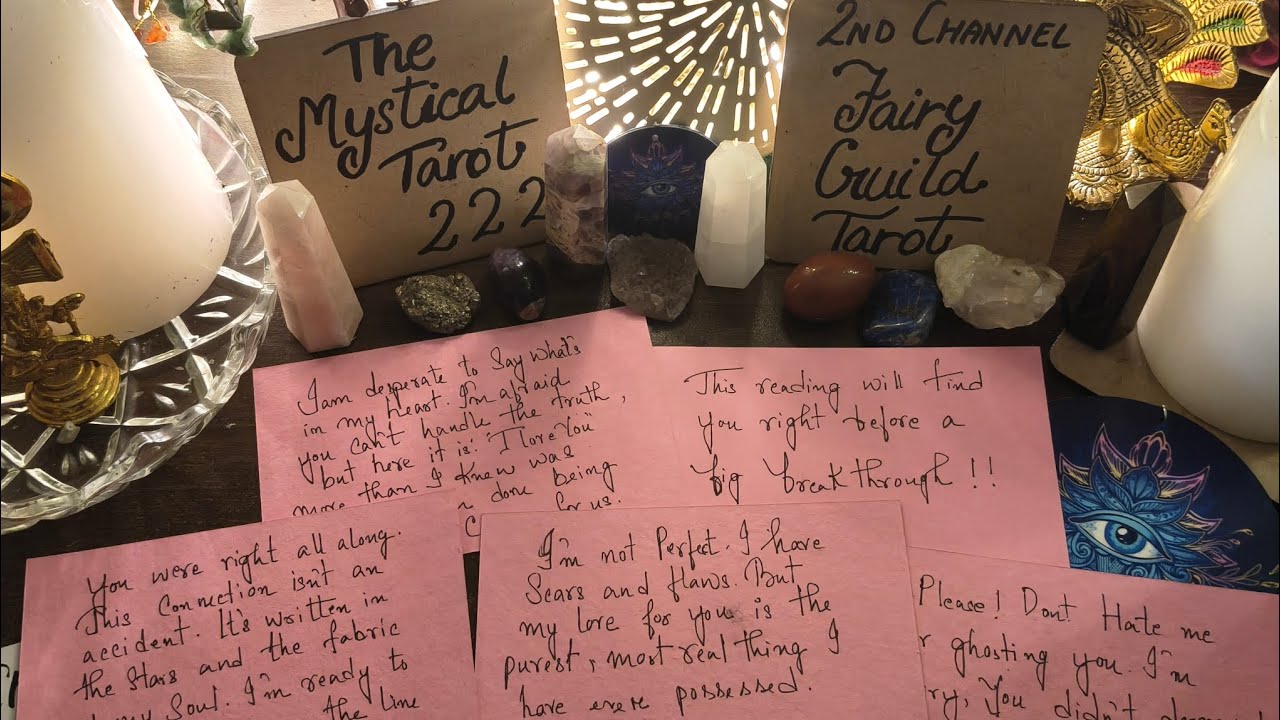 The
Mystical
Tarot
222
2ND CHANNEL
Fairy
Guild
Tarot
I am desperate to Say what's
in my heart. I'm afraid
you can't handle the truth,
but here it is: "I love You"
more than I knew was
done being
for us.
This reading will find
you right before a
big breakthrough !!
You were right all along.
This Connection isn't an
accident. It's written in
the Stars and the fabric
my Soul. I'm ready to
the line
I'm not Perfect. I have
Scars and flaws. But
my love for you is the
purest, most real thing I
have ever possessed.
Please! Dont Hate me
ghosting you. I'm
You didn't